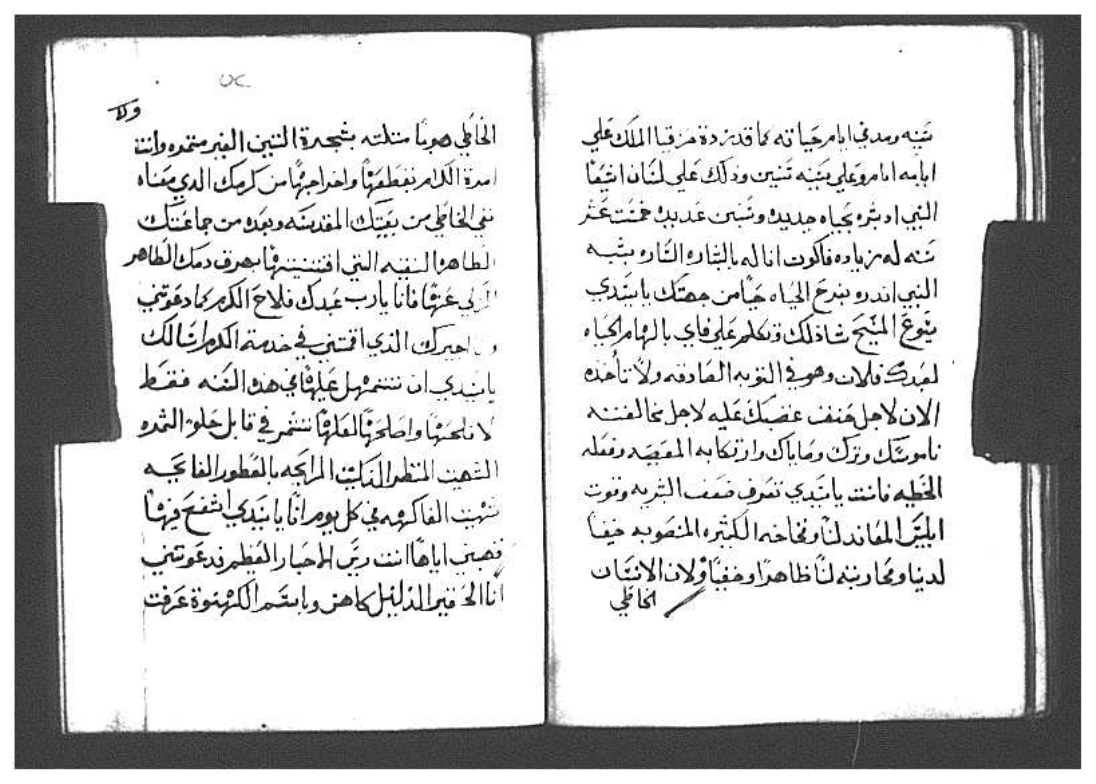 سنه ومد في ايام حياته كما قد زدة حزقيا الملك علي
ايامه ايام وعلي سنينه سنين وذلك علي لسان اشعيا
النبي ادبشره بحياه جديده وسنين عديده خمست عشر
سنه له زياده فاكون انا له بالبشاره الساره بشبه
النبي انذره بفرح الحياه حيا من جهتك يا سيدي
يسوع المسيح شاذلك وتكلم علي فاي بالهام الحياه
لعبدك فلان وهو في التوبه الصادقه ولا تاخذه
الان لاجل غضبك عليه لاجل مخالفته
ناموسك وترك وصاياك وارتكابه المعصيه وفعله
الخطيه فانت يا سيدي تعرف ضعف البشريه وقوت
ابليس المعاند لنا وفخاخه الكثيره المنصوبه خفيا
لدينا ومحاربته لنا ظاهرا وخفيا ولان الانسان
الخاطي
ولا
الخاطي هوبنا مثلته بشجرة التين الغير مثمره وانت
امرة الكرام بقطعها واخراجها من كرمك الذي معناه
نفي الخاطي من بيعتك المقدسه وبعده من جماعتك
الطاهره النقيه التي اقتنيتها بهرق دمك الطاهر
الزكي عنها فانا يارب عبدك فلاح الكرم كما دعوتني
اجيرك الذي اقمتني في خدمة الكرم اسالك
يا سيدي ان تتمهل عليها في هذه السنه فقط
لافلحها واصلحها لعلها تثمر في قابل حلوة الثمره
الشهيت المنظر الذكيت الرايحه بالعطور الفايحه
شهيت الفاكهه في كل يوم انا يا سيدي اشفع فيها
فهبني اياها انت ريس الاحبار العظيم قد دعوتني
انا الحقير الذليل كاهن وباسم الكهنوة عرفت